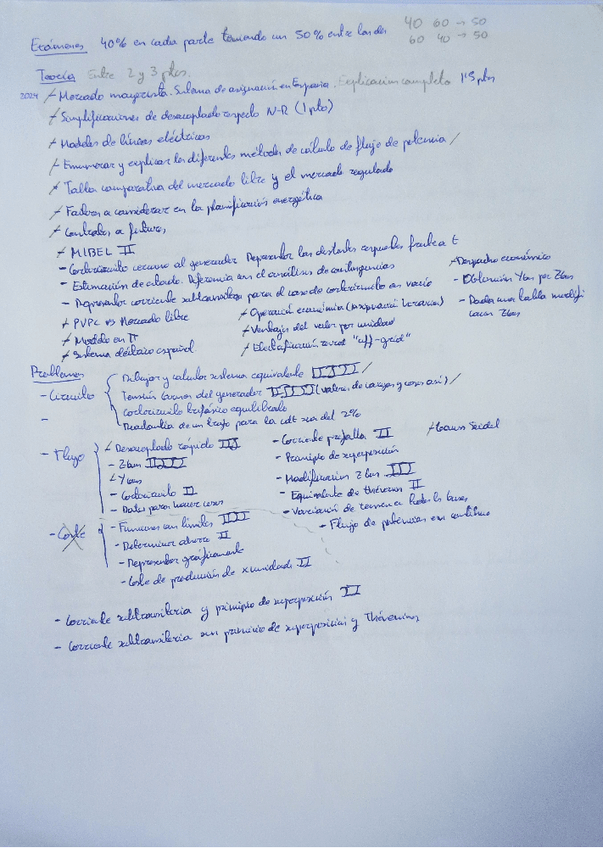 Exámenes 40% en cada parte teniendo un 50% entre las dos
40 60 → 50
60 40 → 50
Teoría Entre 2 y 3 ptos.
2024 Mercado mayorista. Sistema de asignación en España. Explicación completa 1'5 ptos
Simplificaciones de desacoplado respecto N-R (1 pto)
Modelos de líneas eléctricas
Enumerar y explicar los diferentes métodos de cálculo de flujo de potencia /
Tabla comparativa del mercado libre y el mercado regulado
Factores a considerar en la planificación energética
Contratos a futuros
MIBEL II
- Cortocircuito cercano al generador. Representar las distintas respuestas frente a t
- Estimación de estado. Diferencia en el análisis de contingencias
- Representar corriente subtransitoria para el caso de cortocircuito en vacío
PVPC vs Mercado libre
Modelo en π
Sistema eléctrico español
Operación económica
Ventajas del valor por unidad
Electrificación rural "off-grid"
Despacho económico
- Obtención Ybus por Zbus
- Dada una tabla modificacion Zbus
Problemas
- Circuito
Dibujar y calcular sistema equivalente IIIII /
Tensión bornas del generador IIIII (valores de cargas y cosas así) /
Cortocircuito trifásico equilibrado
Reactancia de un trafo para la cdt sea del 2%
-
- Flujo
Desacoplado rápido III
- Zbus IIIII
Ybus
- Cortocircuito II
- Datos para hacer cosas
- Corriente prefalla II
- Principio de superposición
- Modificación Zbus III
- Equivalente de thévenin II
- Variación de tension en todos los buses
- Flujo de potencias en continua
Gauss Seidel
- Coste
- Funciones con límites IIII
- Determinar ahorro II
- Representar gráficamente
- Coste de producción de x unidades II
- Corriente subtransitoria y principio de superposición II
- Corriente subtransitoria sin principio de superposicion y Thévenin